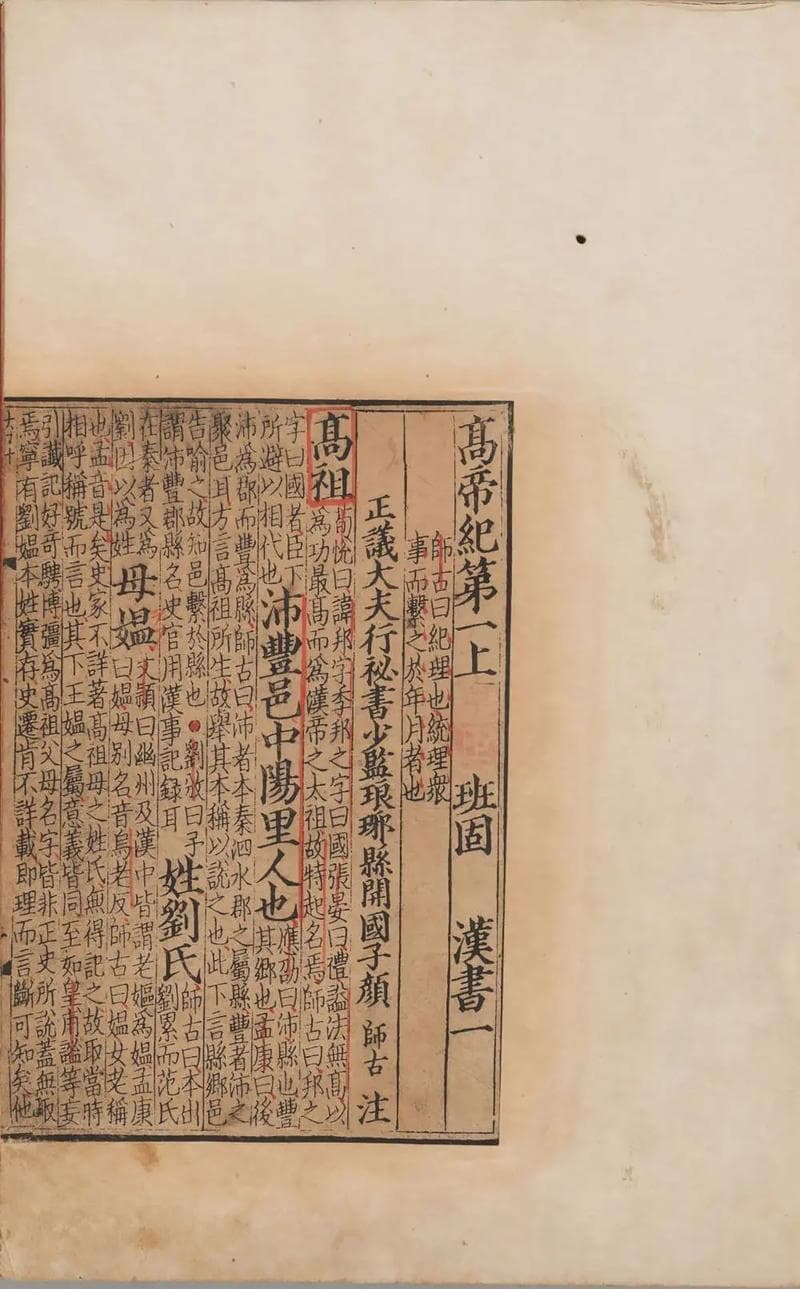 髙帝紀第一上 班固 漢書一
師古曰紀理也統理衆
事而繫之於年月者也
正議大夫行祕書少監琅琊縣開國子顏 師古 注
髙祖荀悅曰諱邦字季邦之字曰國張晏曰禮謚法無髙以
爲功最髙而爲漢帝之太祖故特起名焉師古曰邦之
字曰國者臣下
所避以相代也沛豐邑中陽里人也應劭曰沛縣也豐
其鄉也孟康曰後
沛爲郡而豐爲縣師古曰沛者本秦泗水郡之屬縣豐者沛之
聚邑耳方言髙祖所生故舉其本稱以說之也此下言縣鄉邑
告喻之故知邑繫於縣也●劉攽曰予
謂沛豐郡縣名史官用漢事記録耳姓劉氏師古曰本出
劉累而范氏
在秦者又爲
劉因以爲姓母媼文穎曰幽州及漢中皆謂老嫗爲媼孟康
曰媼母别名音烏老反師古曰媼女老稱
也孟音是矣史家不詳著髙祖母之姓氏無得記之故取當時
相呼稱號而言也其下王媼之屬意義皆同至如皇甫謐等妄
引讖記好奇騁博彊爲髙祖父母名字皆非正史所說蓋無取
焉寧有劉媼本姓實存史遷肯不詳載即理而言斷可知矣他